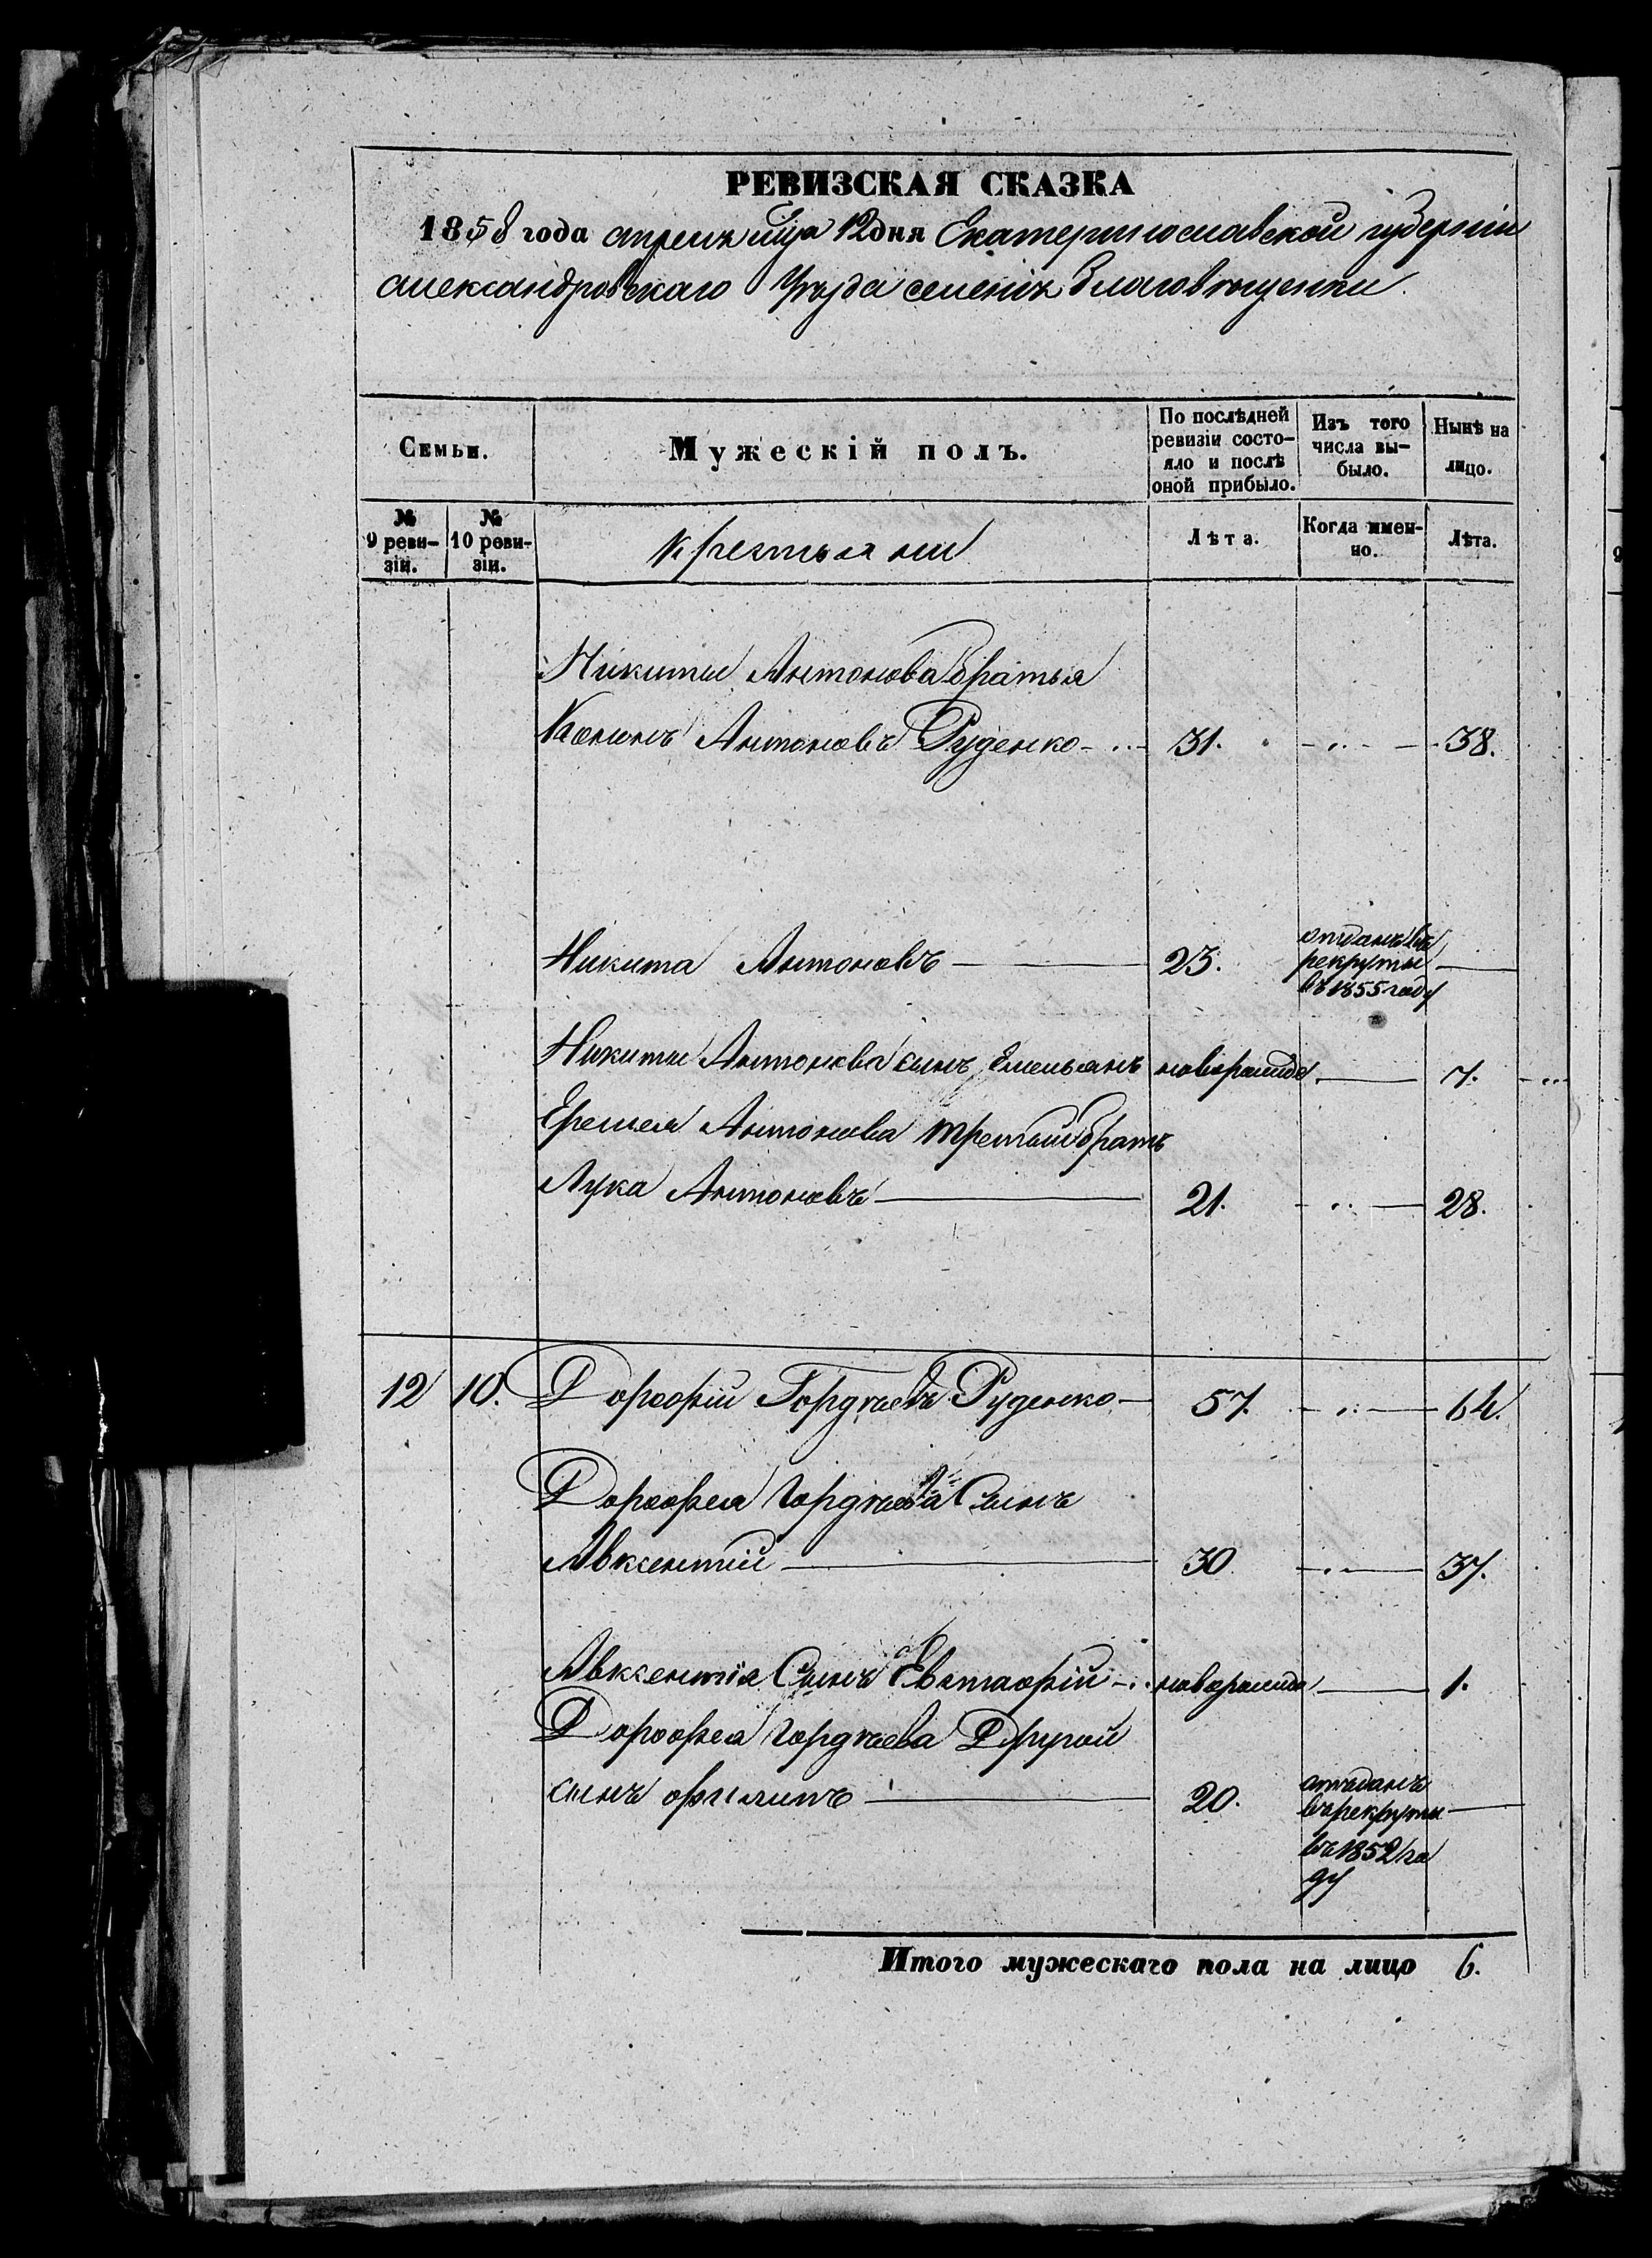 РЕВИЗСКАЯ СКАЗКА
1858 года апреля мца 12 дня Екатеринославской губернiи
александровскаго Уѣзда селенiя Благовѣщенки
Семьи.
Мужескiй полъ.
По послѣдней ревизiи состо-
яло и послѣ
оной прибыло.
Изъ того
числа вы-
было.
Нынѣ на
лицо.
№
9 реви-
зiи.
№
10 реви-
зiи.
крестьяни
Лѣта.
Когда имен-
но.
Лѣта.
Никиты Антонова братья
Кононъ Антоновъ Руденко 31. 38.
Никита Антоновъ 23. отданъ въ
рекруты
въ 1855 году
Никиты Антонова сынъ Емельянъ новорожде 7.
Еремея Антонова третьий братъ
Лука Антоновъ 21. 28.
12 10. Дорофiй Гордѣевъ Руденко 57. 64.
Дорофея Гордѣева Сынъ
Авксентiй 30 37.
Авксентiя Сынъ Евстафiй новорожде 1.
Дорофея Гордѣева Другой
сынъ филипъ 20. отъданъ
в рекруты
въ 1852 го
ду
Итого мужескаго пола на лицо 6.